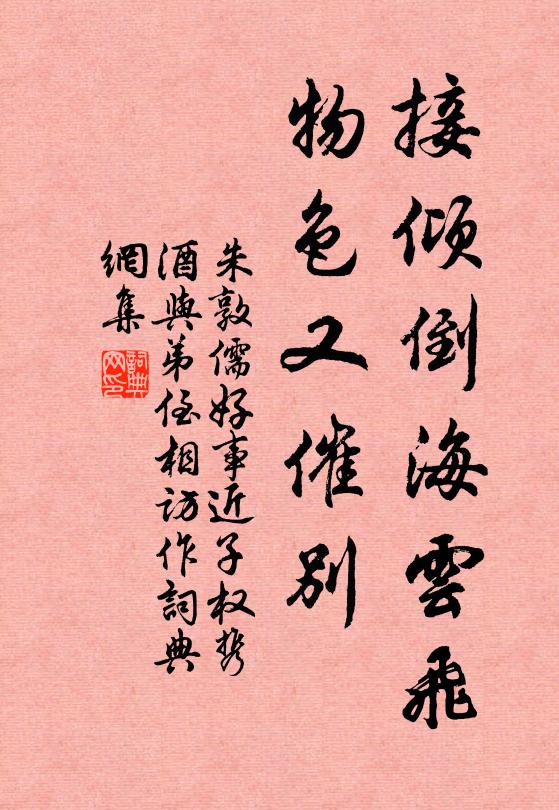 接傾倒海雲飛
物色又催別
朱敦儒好事近子权携
酒與弟侄相訪作詞典
網集
詞典網印